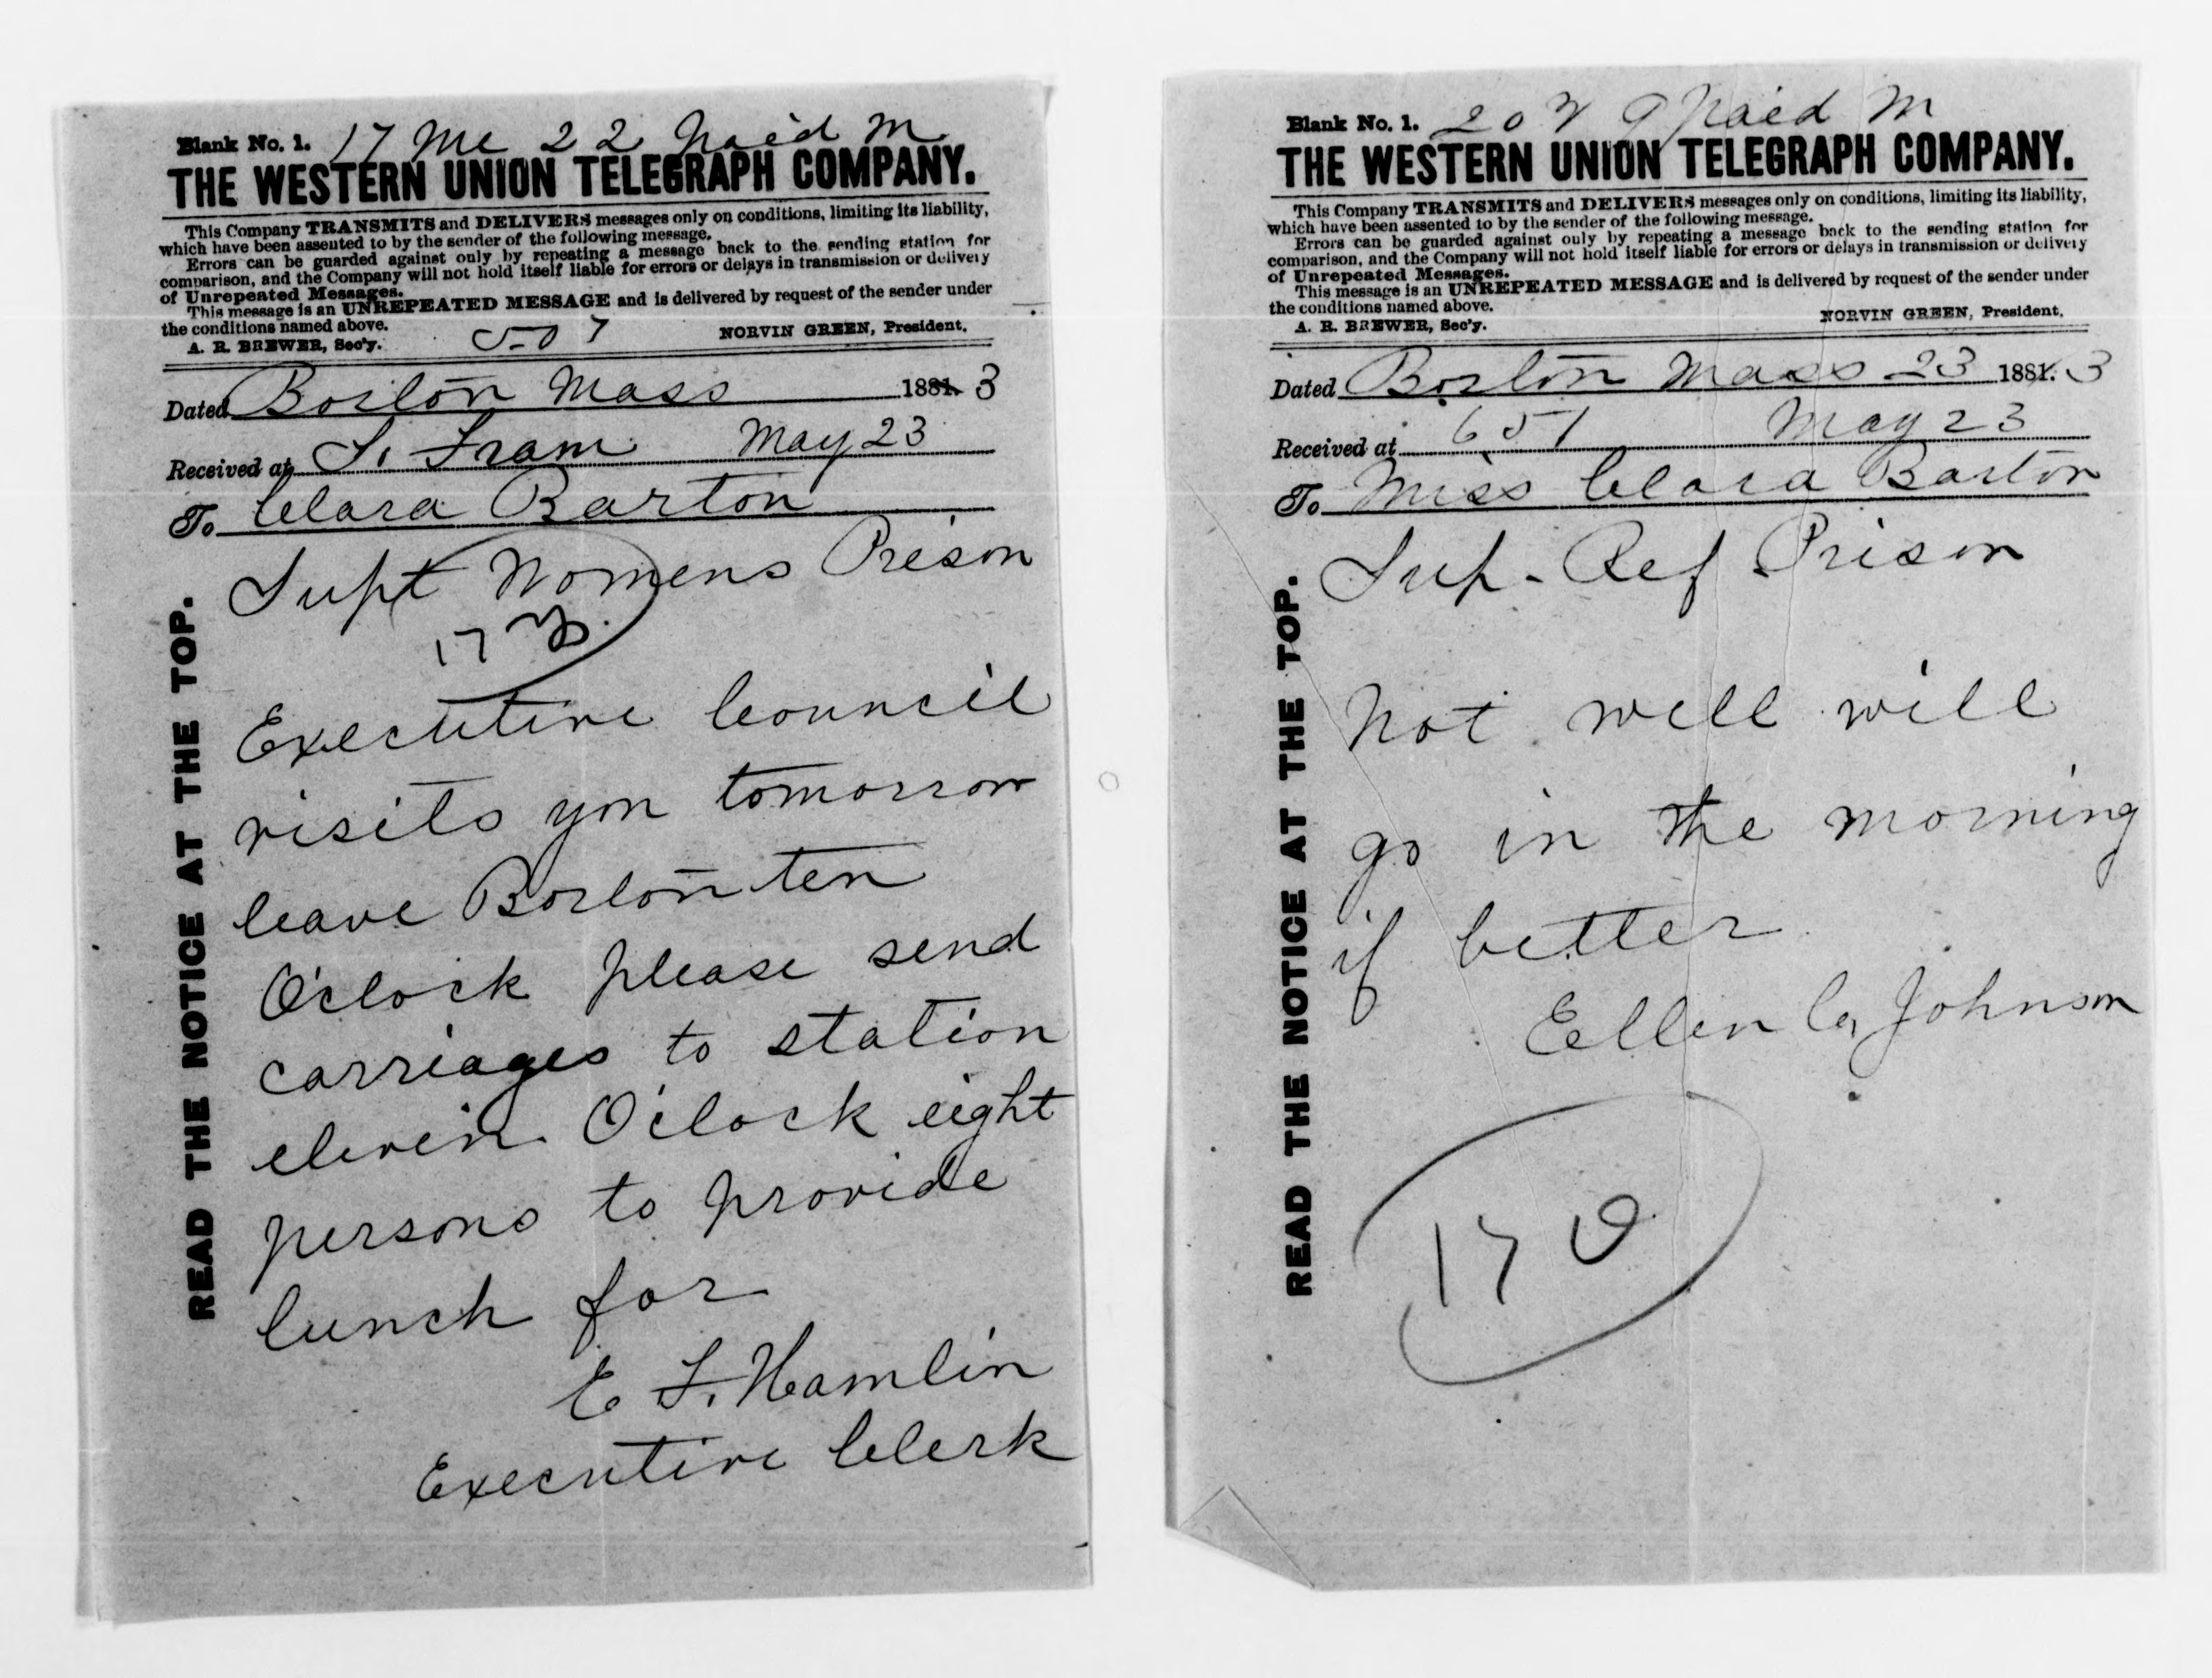 Blank No. 1. 17 Mc 22 Paid M
THE WESTERN UNION TELEGRAPH COMPANY.
This Company TRANSMITS and DELIVERS messages only on conditions, limiting its liability,
which have been assented to by the sender of the following message.
Errors can be guarded against only by repeating a message back to the sending station for
comparison, and the Company will not hold itself liable for errors or delays in transmission or delivery
of Unrepeated Messages.
This message is an UNREPEATED MESSAGE and is delivered by request of the sender under
the conditions named above.
A. R. BREWER, Sec'y. 507 NORVIN GREEN, President.
Dated Boston Mass 1881. 3
Received at S. Fram May 23
To Clara Barton
Supt Womens Prison
17
READ THE NOTICE AT THE TOP.
Executive Council
visits you tomorrow
leave Boston ten
O'clock please send
carriages to station
eleven O'clock eight
persons to provide
lunch for
E F. Hamlin
Executive Clerk
Blank No. 1. 9 Paid M
THE WESTERN UNION TELEGRAPH COMPANY.
This Company TRANSMITS and DELIVERS messages only on conditions, limiting its liability,
which have been assented to by the sender of the following message.
Errors can be guarded against only by repeating a message back to the sending station for
comparison, and the Company will not hold itself liable for errors or delays in transmission or delivery
of Unrepeated Messages.
This message is an UNREPEATED MESSAGE and is delivered by request of the sender under
the conditions named above.
A. R. BREWER, Sec'y. NORVIN GREEN, President.
Dated Boston Mass 23 1881. 3
Received at 651 May 23
To Miss Clara Barton
Sup. Ref Prison
READ THE NOTICE AT THE TOP.
Not well will
go in the morning
if better
Ellen C, Johnson
170